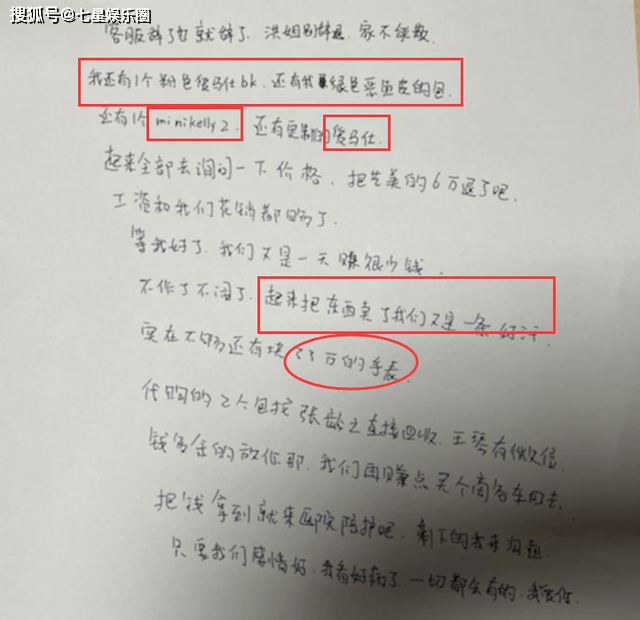 搜狐号@七星娱乐圈
客服辞了也就辞了. 洪姐别辞退. 家不能散.
我还有1个粉色爱马仕bk. 还有我绿色恶鱼皮的包.
还有1个minikelly2. 还有定制的爱马仕.
起来全部去询问一下价格. 把艺美的6万退了吧.
工资和我们花销都够了.
等我好了. 我们又是一天赚很少钱.
不作了不闹了. 起来把东西卖了我们又是一条好汉.
实在不够还有块23万的手表.
代购的2个包找张龄之直接回收. 王琴有微信.
钱多余的放你那. 我们再赚点买个商务车回去.
把钱拿到就来医院陪护吧. 剩下的我来沟通.
只要我们感情好. 我看好病了. 一切都会有的. 我爱你.